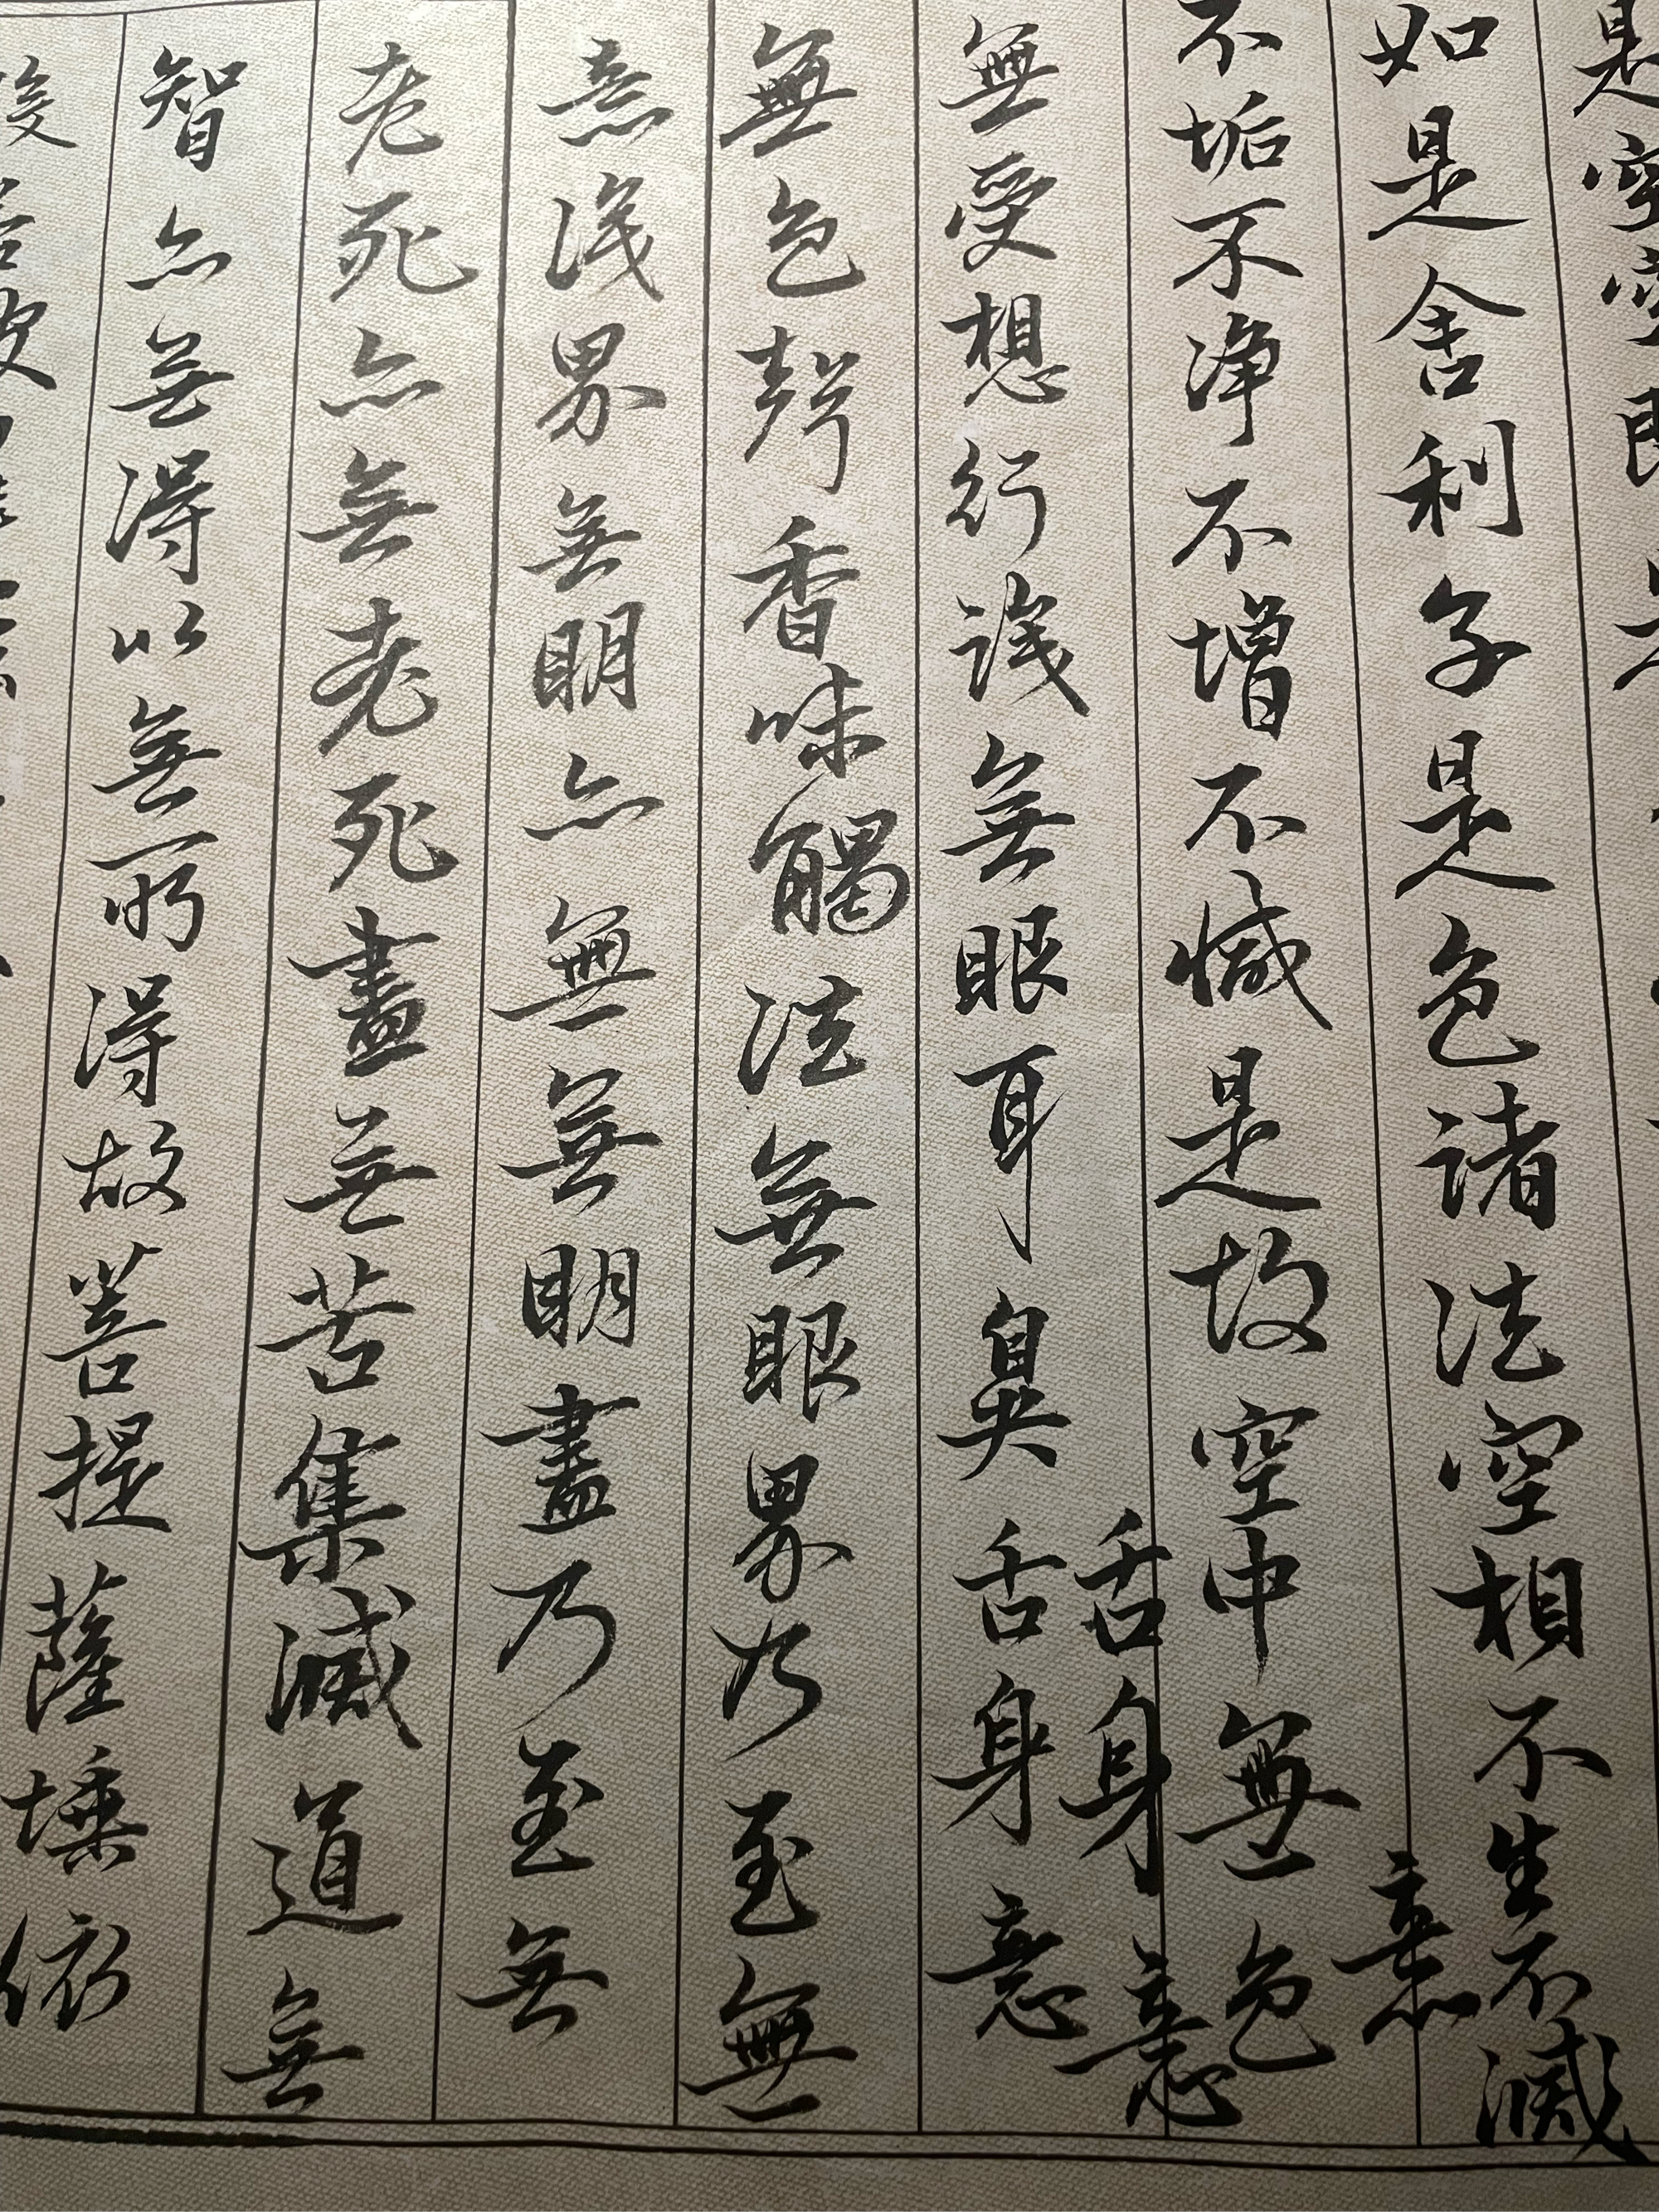 是空空即是
如是舍利子是色諸法空相不生不滅
意
不垢不净不增不減是故空中無色
舌身意
無受想行識無眼耳鼻舌身意
無色聲香味觸法無眼界乃至無
意識界無明亦無無明盡乃至無
老死亦無老死盡無苦集滅道無
智亦無得以無所得故菩提薩埵依
般若波